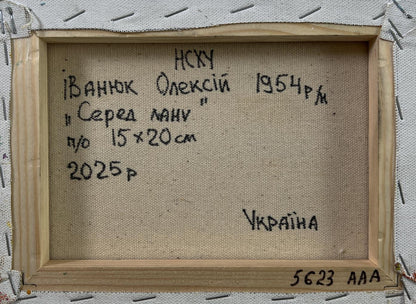 НСХУ
ІВАНЮК ОЛЕКСІЙ 1954 р/н
„Серед лану"
п/о 15×20 см
2025 р
УКРАЇНА
5623 ААА